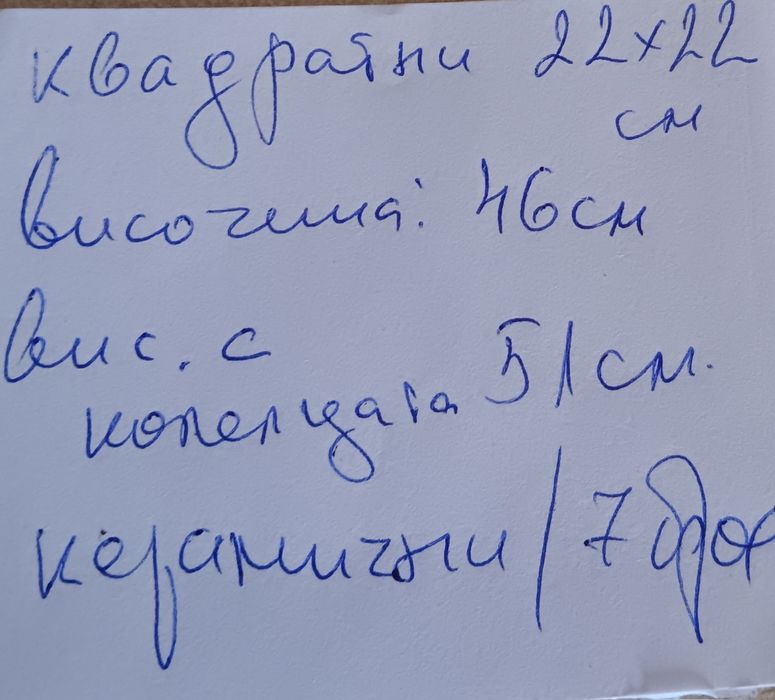 квадратни 22x22
см
височина: 46см
вис. с
колелцата 51см.
керамични / 7 броя